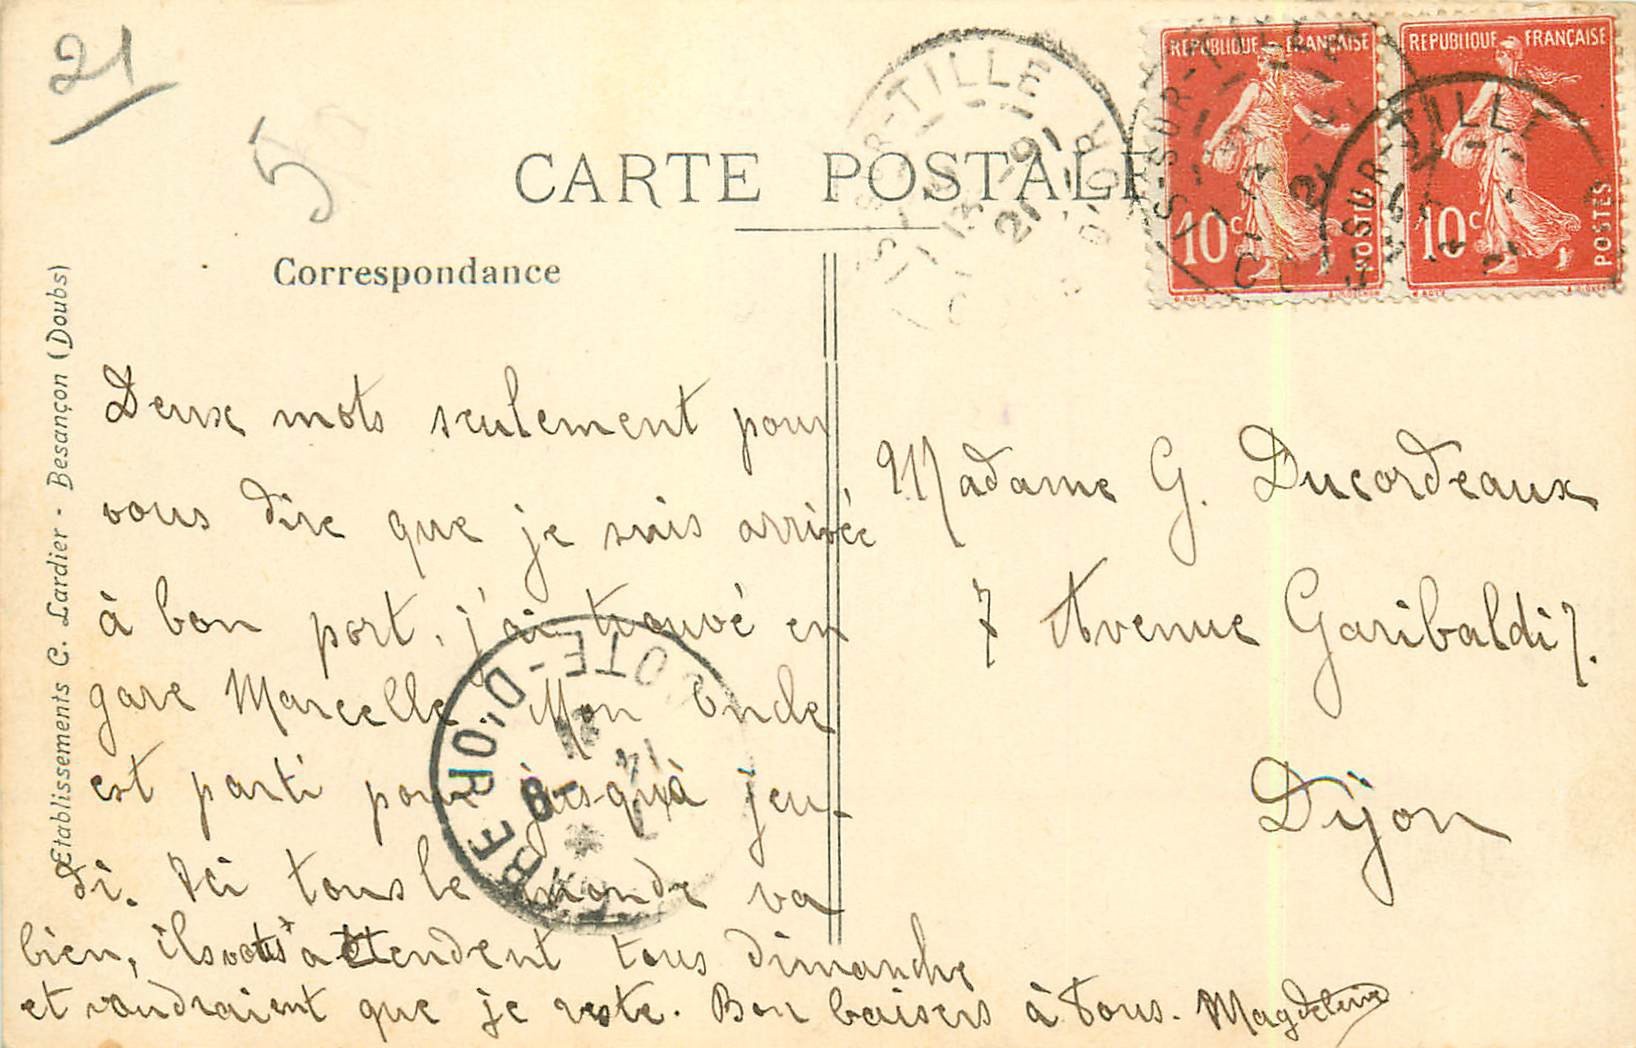 21
5
CARTE POSTALE
Correspondance
Etablissements C. Lardier - Besançon (Doubs)
IS-SUR-TILLE
13 -9
21
CÔTE D'OR
REPUBLIQUE FRANÇAISE
10c
POSTES
REPUBLIQUE FRANÇAISE
10c
POSTES
Deux mots seulement pour
vous dire que je suis arrivée
à bon port, j'ai trouvé en
gare Marcelle. Mon Oncle
est parti pour jusqu'à jeu-
di. Ici tous le monde va
bien, ils vous attendent tous dimanche
et voudraient que je reste. Bon baisers à tous. Magdeleine
Madame G. Ducordeaux
7 Avenue Garibaldi 7.
Dijon
COTE-D'OR